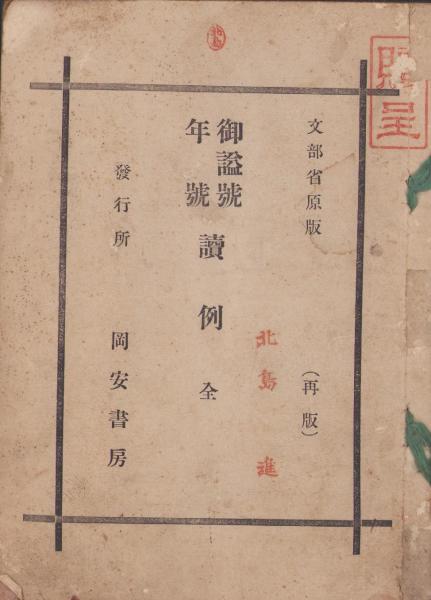 贈呈
文部省原版 (再版)
御謚號
年號
讀例 全
北島進
發行所 岡安書房